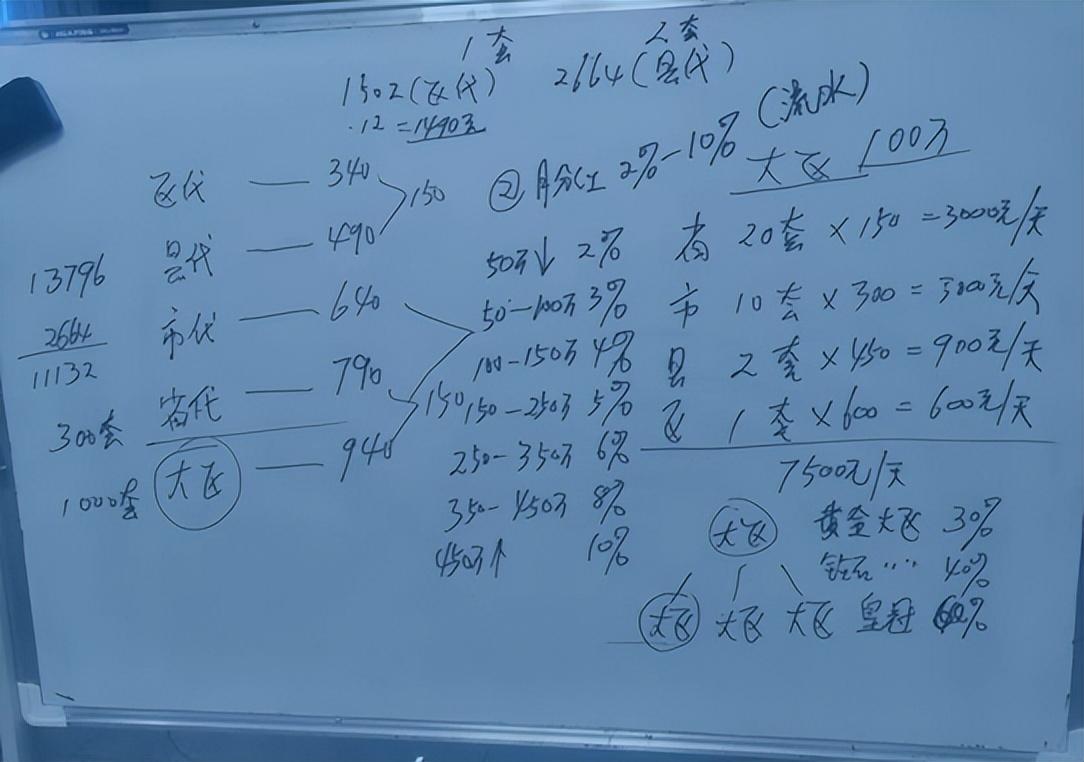 1套 2套
1502(区代) 2664(县代)
.12=1490元
区代 — 340
150
县代 — 490
市代 — 640
省代 — 790
150
大区 — 940
13796
2664
11132
300套
1000套
② 月分红 2%-10% (流水)
50万↓ 2%
50-100万 3%
100-150万 4%
150-250万 5%
250-350万 6%
350-450万 8%
450万↑ 10%
大区 100万
省 20套×150=3000元/天
市 10套×300=3000元/天
县 2套×450=900元/天
区 1套×600=600元/天
7500元/天
大区 黄金大区 30%
钻石···· 40%
大区 大区 大区 皇冠